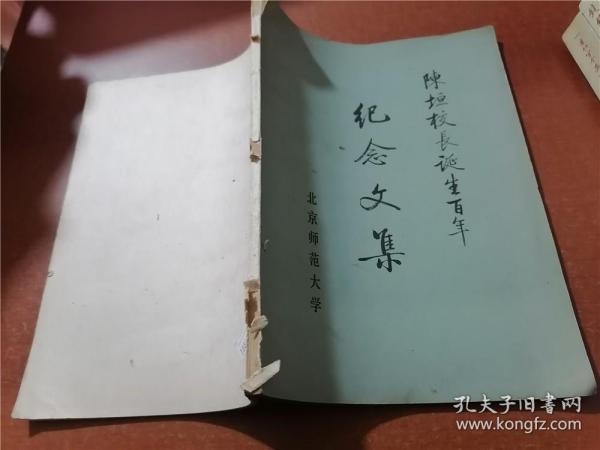 陳垣校長诞生百年
纪念文集
北京师范大学
孔夫子旧书网
www.kongfz.com